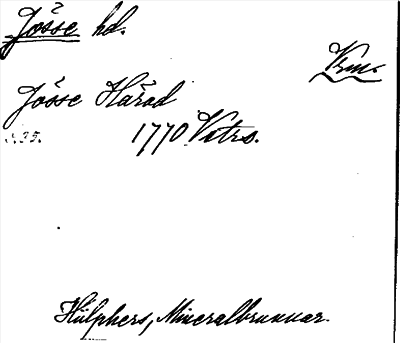 Jösse hd.
Vrm.
Jösse Härad
1770 Vttrs.
Hülphers, Mineralbrunnar.